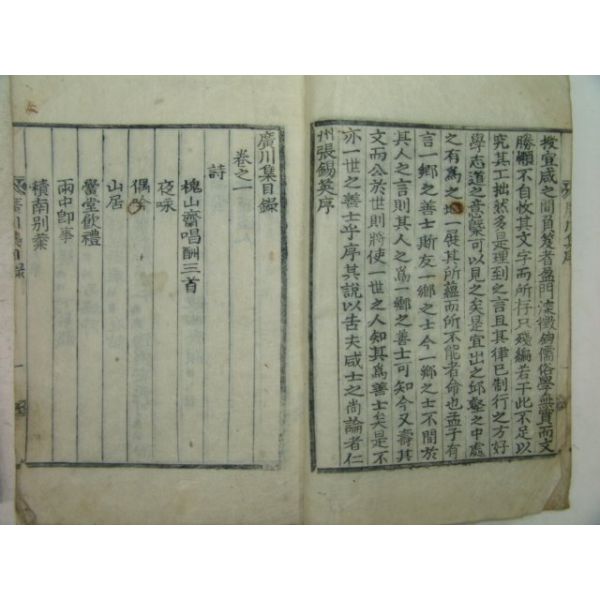 按宜咸之間負笈者盈門深懲徇儒俗學無實而文
勝顯不自收其文字而所存只殘編若干此不足以
究其工拙然多是理到之言且其律已制行之方好
學志道之意槩可以見之矣是宜出之邱壑之中處
之有爲之地一展其所蘊而所不能者命也孟子有
言一鄕之善士斯友一鄕之士今一鄕之士不間於
其人之言則其人之爲一鄕之善士可知今又壽其
文而公於世則將使一世之人知其爲善士矣是不
亦一世之善士乎序其說以告夫咸士之尙論者仁
州張錫英序
廣川集序
廣川集目錄
卷之一
詩
槐山齋唱酬三首
夜咏
偶吟
山居
黌堂飮禮
雨中卽事
積南別業
廣川集目錄